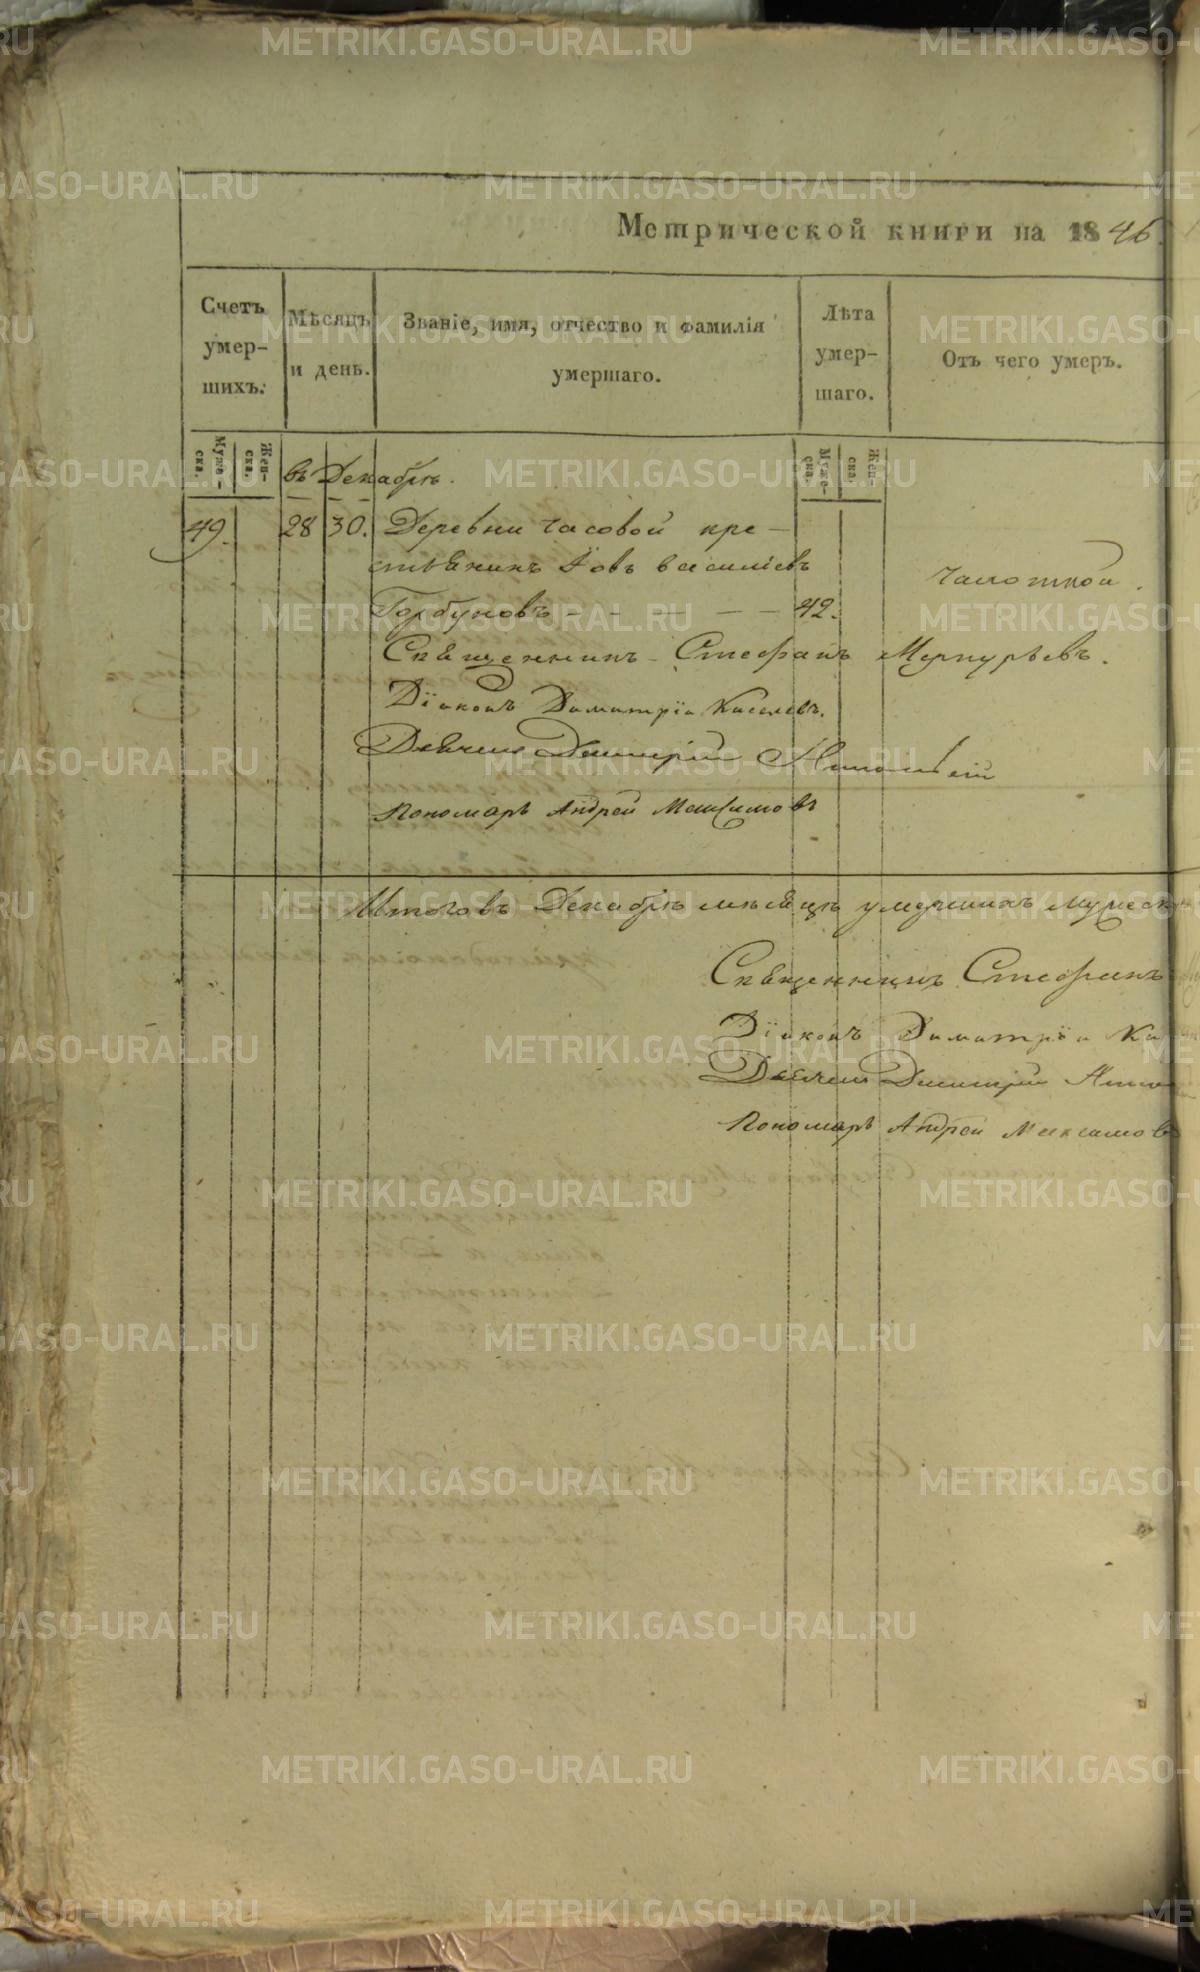 Метрической книги на 1846.
Счетъ умер-шихъ.
Мѣсяцъ и день.
Званіе, имя, отчество и фамилія умершаго.
Лѣта умер-шаго.
Отъ чего умеръ.
Муже-ска.
Жен-ска.
Муже-ска.
Жен-ска.
въ Декабрѣ.
49. 28 30. Деревни Часовой кре-
стьянинъ Іовъ Василіевъ
Чахоткой.
Горбуновъ - - - - - 42.
Священникъ Стефанъ Меркурьевъ.
Діаконъ Димитрій Киселевъ.
Дьячекъ Димитрій
Пономарь Андрей Максимовъ
Итого въ Декабрѣ мѣсяцѣ умершихъ мужеск
Священникъ Стефанъ
Діаконъ Димитрій Ки
Дьячекъ Димитрій
Пономарь Андрей Максимовъ
METRIKI.GASO-URAL.RU